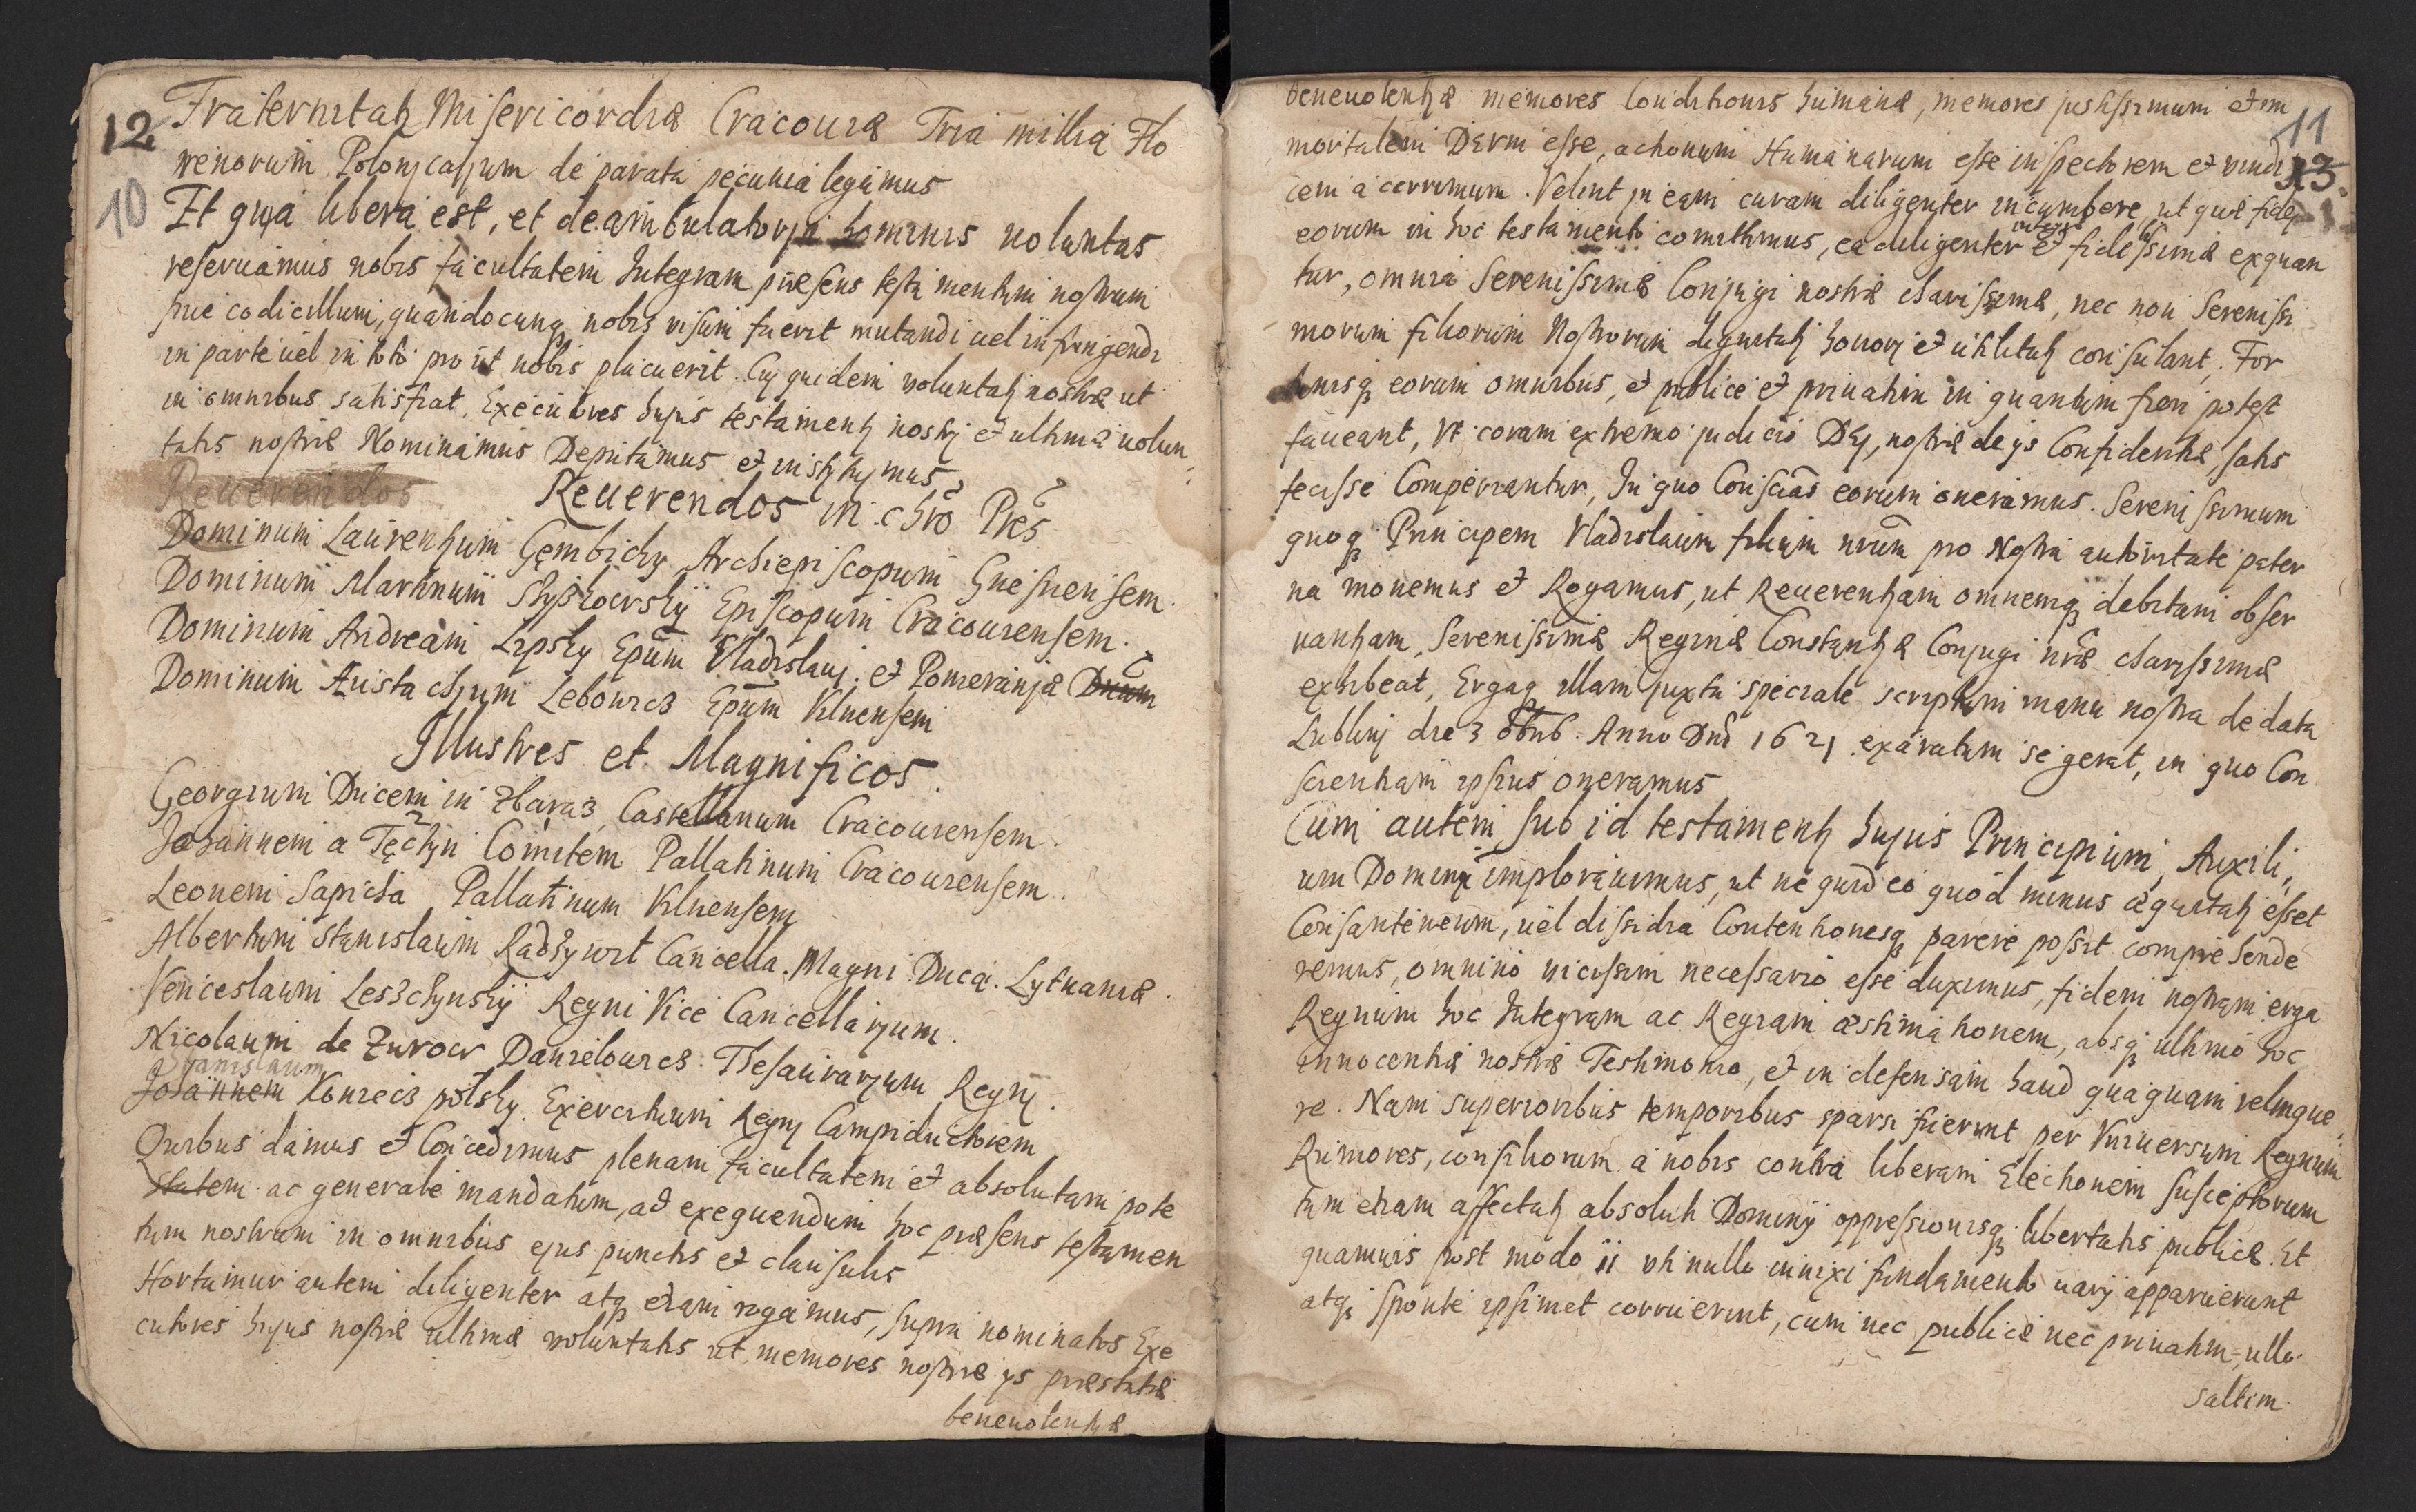 12
10
Fraternitatį Misericordiæ Cracouiæ Tria millia Flo
renorum Polonįcalįum de parata pecunia legamus
Et quia libera est, et deambulatorįa hominis uoluntas
reseruamus nobis facultatem Integram præsens testamentum nostrum
siue codicillum, quandocunqꝫ nobis uisum fuerit mutandi uel infringendi
in parte uel in toto pro ut nobis placuerit. Cuj quidem voluntatj nostræ ut
in omnibus satisfiat. Executores hujus testamentj nostrj et ultimæ uolun
tatis nostræ Nominamus Deputamus et instįtujmus
Reuerendos Reuerendos in chro Pres
Dominum Laurentįum Gembicky Archiepiscopum Gnesnensem.
Dominum Martinum Szyszkowskÿ Episcopum Cracouiensem.
Dominum Andream Lipsky Epum Vladislauj. et Pomeranįæ Dnum
Dominum Eustachįum Lebowicz Epum Vilnensem
Illustres et Magnificos
Georgium Ducem in Zbaraz, Castellanum Cracouiensem.
Johannem a Tęczyn Comitem Pallatinum Cracouiensem.
Leonem Sapieha Pallatinum Vilnensem
Albertum Stanislaum Radzywil Cancella. Magni Duca. Lytuaniæ.
Venceslaum Leszchynskÿ Regni Vice Cancellarįum.
Nicolaum de Zurow Danielowicz Thesaurarįum Regnj.
Stanislaum
Johannem Koniecz polsky. Exercituum Regnj Campiductorem
Quibus damus et Concedimus plenam facultatem et absolutam pote
statem ac generale mandatum, ad exequendum hoc præsens testamen
tum nostrum in omnibus ejus punctis et clausulis
Hortamur autem diligenter atqꝫ etiam rogamus, supra nominatos Exe
cutores hujus nostræ ultimæ voluntatis ut memores nostræ ijs præstitæ
beneuolentįæ
11
13.
beneuolentįæ memores Conditionis humanæ, memores justissimum et im
mortalem Deum esse, actionum Humanarum esse inspectorem et vindi
cem acerrimum. Velint in eam curam diligenter incumbere, ut quæ fidej
eorum in hoc testamento comittimus, ea diligenter integre et fidelissimæ exequan
tur, omnia Serenissimæ Conjugi nostræ charissimæ, nec non Serenissi
morum filiorum Nostrorum dignitatj honorj et utilitatj consulant. For
tunisqꝫ eorum omnibus, et publice et priuatim in quantum fieri potest
faueant, Vt coram extremo judicio Dej, nostræ de ijs Confidentiæ satis
fecisse Comperiantur, In quo Conscias eorum oneramus. Serenissimum
quoqꝫ Principem Vladislaum filium nrum pro Nostra autoritate pater
na monemus et Rogamus, ut Reuerentįam omnemqꝫ debitam obser
uantiam, Serenissimæ Reginæ Constantįæ Conjugi nræ charissimæ
exhibeat, Ergaqꝫ illam juxta speciale scriptum manu nostra de data
Lublinj die 3 8bris. Anno Dni 1621 exaratum se gerat, in quo Con
scientiam ipsius oneramus
Cum autem sub id testamentj hujus Principium, Auxili,
um Dominj implorauimus, ut ne quid eo quod minus æquitatj esset
Consantaneum, uel dissidia Contentionesqꝫ parere possit comprehende
remus, omnino uicissim necessario esse duximus, fidem nostram erga
Regnum hoc Integram ac Regiam æstimationem, absqꝫ ultimo hoc
innocentiæ nostræ Testimonio, et in defensam haud quaquam relinque
re. Nam superioribus temporibus sparsi fuerunt per Vniuersum Regnum
Rumores, consiliorum a nobis contra liberam Electionem susceptorum
tum etiam affectatj absoluti Dominij oppressionisqꝫ libertatis publicæ. Et
quamuis post modo ii uti nullo innixi fundamento uarij apparuerunt
atqꝫ sponte ipsimet corruerint, cum nec publicæ nec priuatim, ullo
saltim